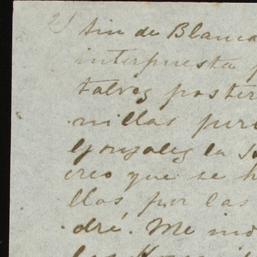 2)
tin de Blanca
interpuesta p
talvez poster
nillas per
Gonzalez la S
creo que se h
llas por las
dré. Me ind